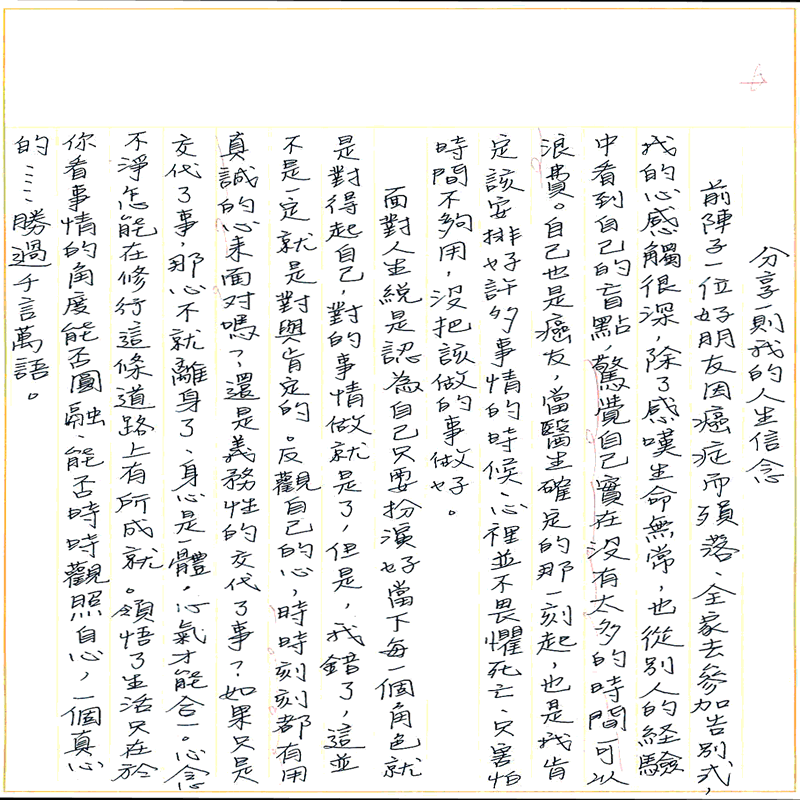 分享一則我的人生信念
前陣子一位好朋友因癌症而殞落、全家去參加告別式，
我的心感觸很深，除了感嘆生命無常，也從別人的經驗
中看到自己的盲點，驚覺自己實在沒有太多的時間可以
浪費。自己也是癌友，當醫生確定的那一刻起，也是我肯
定該安排好許多事情的時候、心裡並不畏懼死亡、只害怕
時間不夠用，沒把該做的事做好。
面對人生總是認為自己只要扮演好當下每一個角色就
是對得起自己，對的事情做就是了，但是，我錯了，這並
不是一定就是對與肯定的。反觀自己的心，時時刻刻都有用
真誠的心来面对嗎？還是義務性的交代了事？如果只是
交代了事，那心不就離身了、身心是一體，心氣才能合一。心念
不淨怎能在修行這條道路上有所成就。領悟了生活只在於
你看事情的角度能否圓融、能否時時觀照自心，一個真心
的……勝過千言萬語。